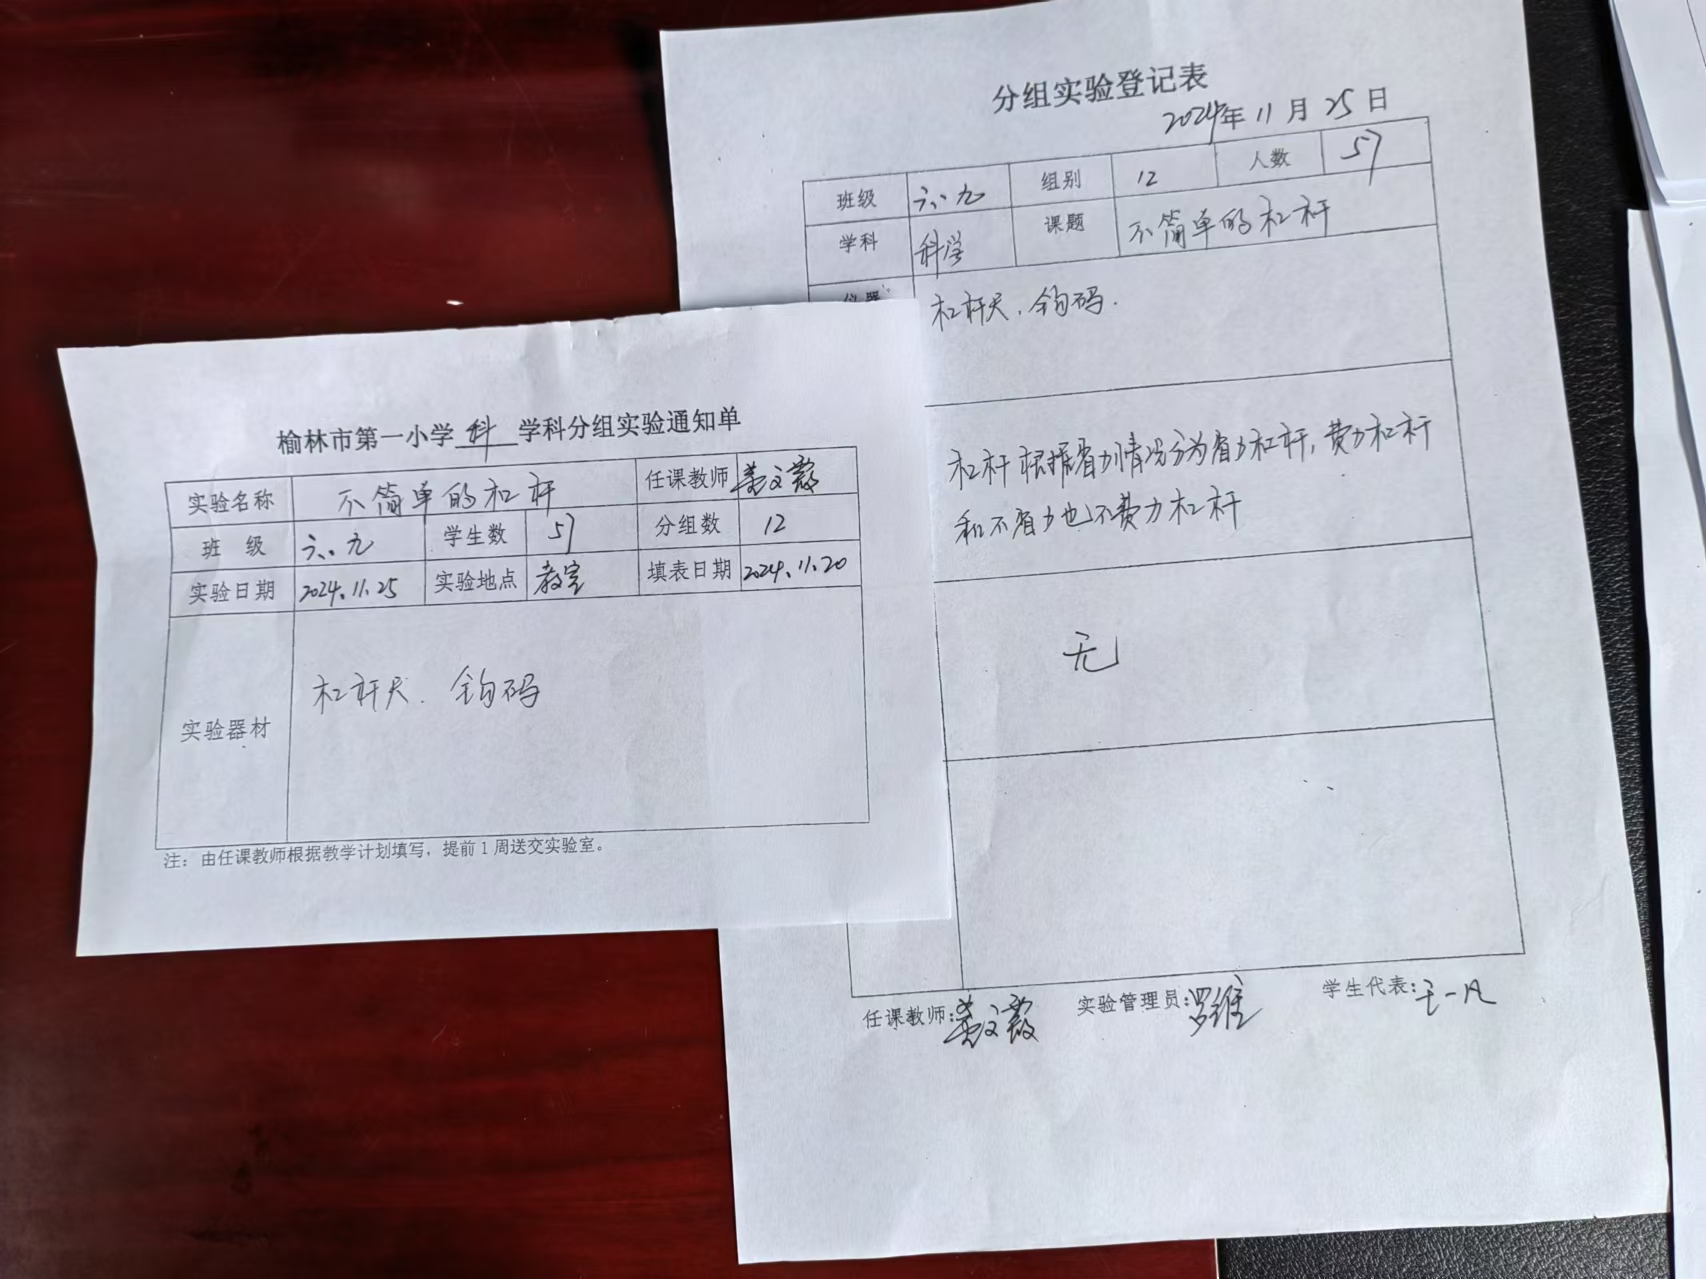 榆林市第一小学 科 学科分组实验通知单
实验名称 不简单的杠杆 任课教师
班 级 六、九 学生数 57 分组数 12
实验日期 2024.11.25 实验地点 教室 填表日期 2024.11.20
实验器材 杠杆尺. 钩码
注：由任课教师根据教学计划填写，提前1周送交实验室。
分组实验登记表
2024年 11 月 25 日
班级 六、九 组别 12 人数 57
学科 科学 课题 不简单的杠杆
仪器 杠杆尺. 钩码.
杠杆根据省力情况分为省力杠杆, 费力杠杆
和不省力也不费力杠杆
无
任课教师: 实验管理员:罗维 学生代表:王一凡